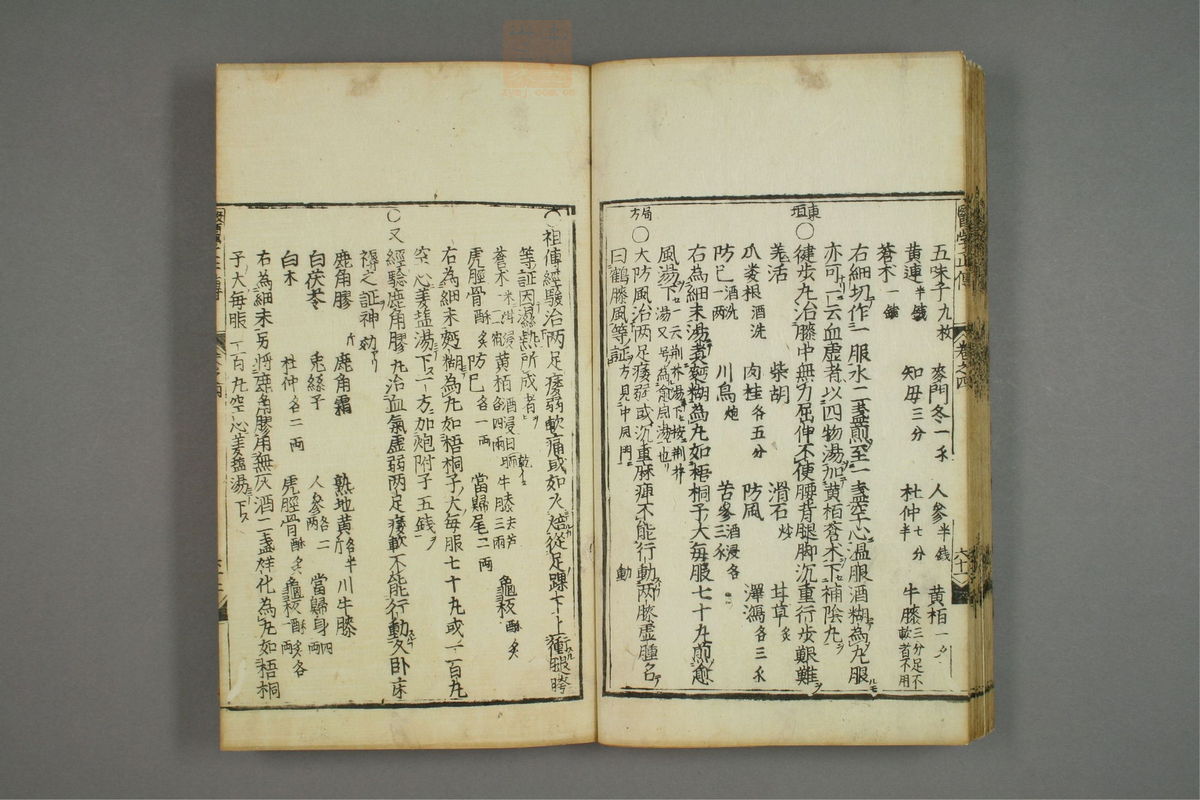 醫學正傳 卷之四 六十一
五味子九枚 麥門冬一錢 人參半錢 黃栢一錢
黃連半錢 知毋三分 杜仲七分半 牛膝三分足不軟者不用
蒼朮一錢
右細切作一服水二盞煎至一盞空心温服酒糊為丸服
亦可一云血虛者以四物湯加黃栢蒼朮下補陰丸
東垣〇健步丸治膝中無力屈伸不便腰背腿脚沉重行步艱難
羗活 柴胡 滑石炒 甘草炙
瓜蔞根酒洗 肉桂各五分 防風 澤瀉各三錢
防已酒洗一两 川烏炮 苦參酒浸各三錢
右為細末湯煮麪糊為丸如梧桐子大每服七十丸煎愈
風湯下一云荆芥湯下按荆芥湯又号為愈風湯也
局方〇大防風治两足痿弱或沉重麻痺不能行動两膝虛腫名
曰鶴膝風等証方見中風門
動
〇祖傳經驗治两足痿弱軟痛或如火從足踝下上衝腿胯
等証因濕熱所成者
蒼朮米泔浸二宿 黃栢酒浸日晒乾各四兩 牛膝去芦三兩 龜板酥炙
虎脛骨酥炙 防已各一兩 當歸尾二兩
右為細末麪糊為丸如梧桐子大每服七十丸或一百丸
空心姜塩湯下一方加炮附子五錢
〇又經驗鹿角膠丸治血氣虛弱两足痿軟不能行動久卧床
褥之証神効
鹿角膠一斤 鹿角霜 熟地黃各半斤 川牛膝
白茯苓 兎絲子 人參各二兩 當歸身四兩
白朮 杜仲各二兩 虎脛骨酥炙 龜板酥炙各一兩
右為細末另將鹿角膠用無灰酒二盞烊化為丸如梧桐
子大每服一百丸空心姜塩湯下